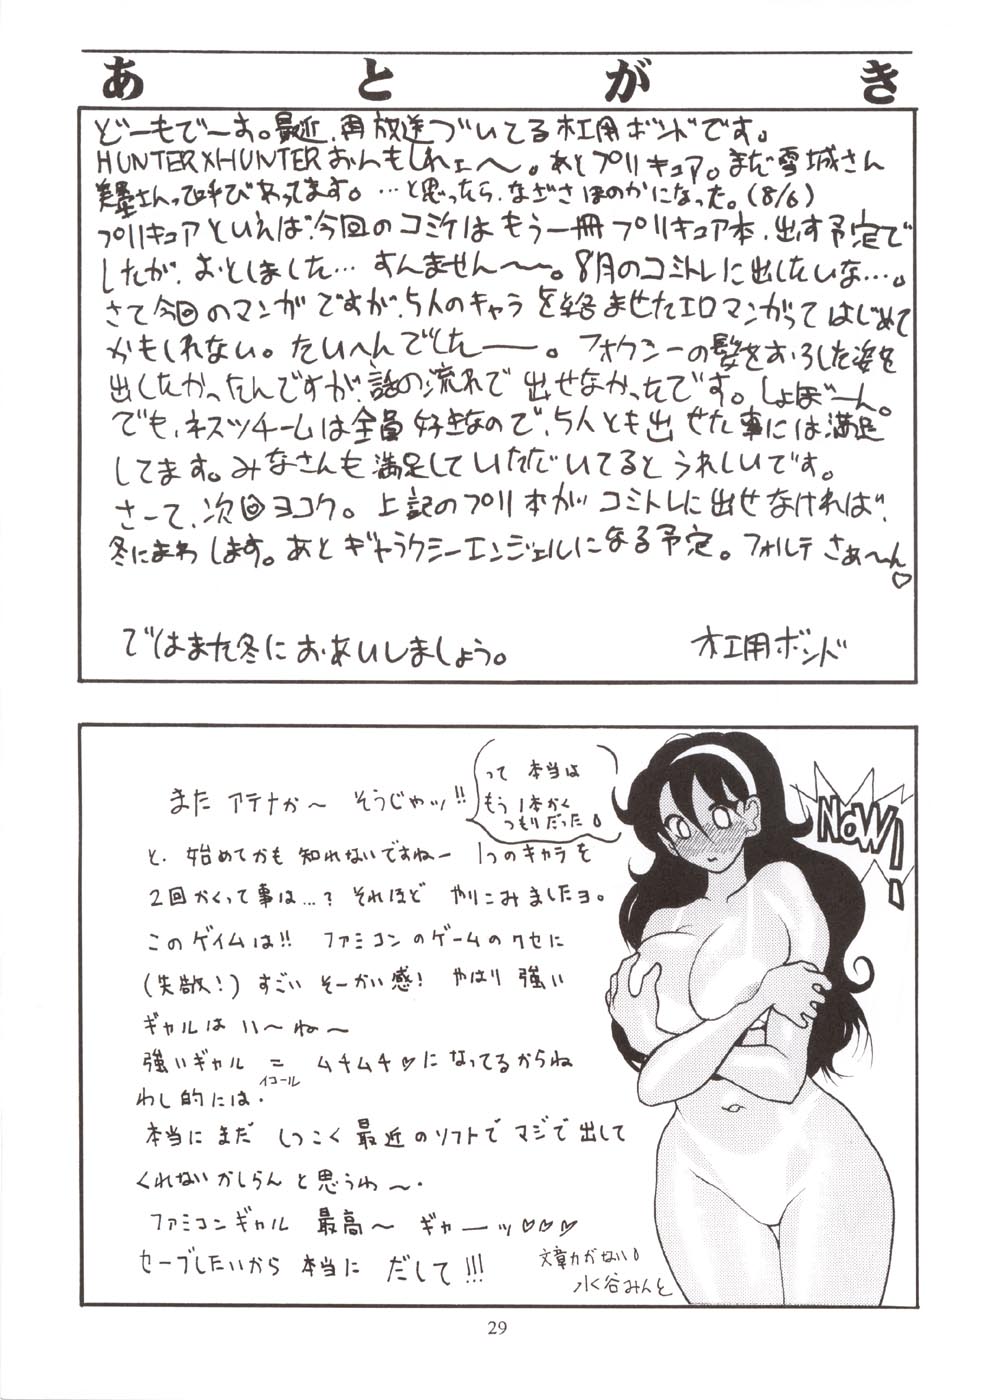 あとがき
どーもでーす。最近、再放送づいてる木工用ボンドです。
HUNTER×HUNTERおんもしれェ〜。あとプリキュア。まだ雪城さん
美墨さんって呼びあってます。…と思ったら、なぎさほのかになった。(8/6)
プリキュアといえば、今回のコミケはもう一冊プリキュア本、出す予定で
したが、おとしました…すんません〜〜。8月のコミトレに出したいな…。
さて今回のマンガですが、5人のキャラを絡ませたエロマンガってはじめて
かもしれない。たいへんでしたーー。フォクシーの髪をおろした姿を
出したかったんですが、話の流れで出せなかったです。しょぼーん。
でも、ネスツチームは全員好きなので、5人とも出せた事には満足
してます。みなさんも満足していただいてるとうれしいです。
さーて、次回ヨコク。上記のプリ本がコミトレに出せなければ、
冬にまわします。あとギャラクシーエンジェルになる予定。フォルテさぁ〜ん♡
ではまた冬におあいしましょう。
木工用ボンド
って本当は
もう1本かく
つもりだった
また アテナか〜 そうじゃッ!!
NOW!
と、始めてかも知れないですねー 1つのキャラを
2回かくって事は…? それほど やりこみましたヨ。
このゲイムは!! ファミコンのゲームのクセに
(失敬!) すごい そーかい感! やはり 強い
ギャルは い〜ね〜
強いギャル = ムチムチ♡になってるからね
イコール
わし的には・
本当に まだ しつこく 最近のソフトで マジで出して
くれないかしらんと思うわ〜・
ファミコンギャル 最高〜 ギャーーッ♡♡♡
セーブしたいから 本当に だして!!!
文章力がない
水谷みんと
29